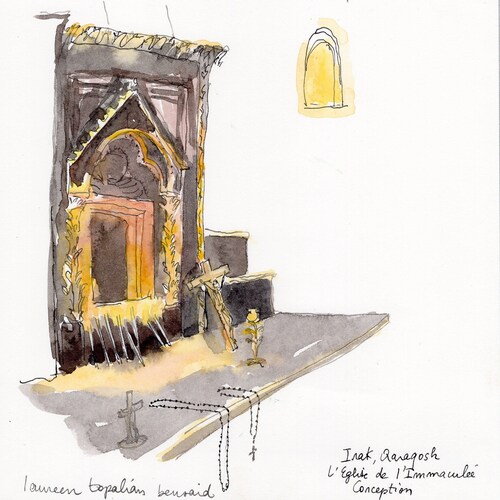 Irak, Qaragosh
L'Eglise de l'Immaculée
Conception
laureen topalian benraid